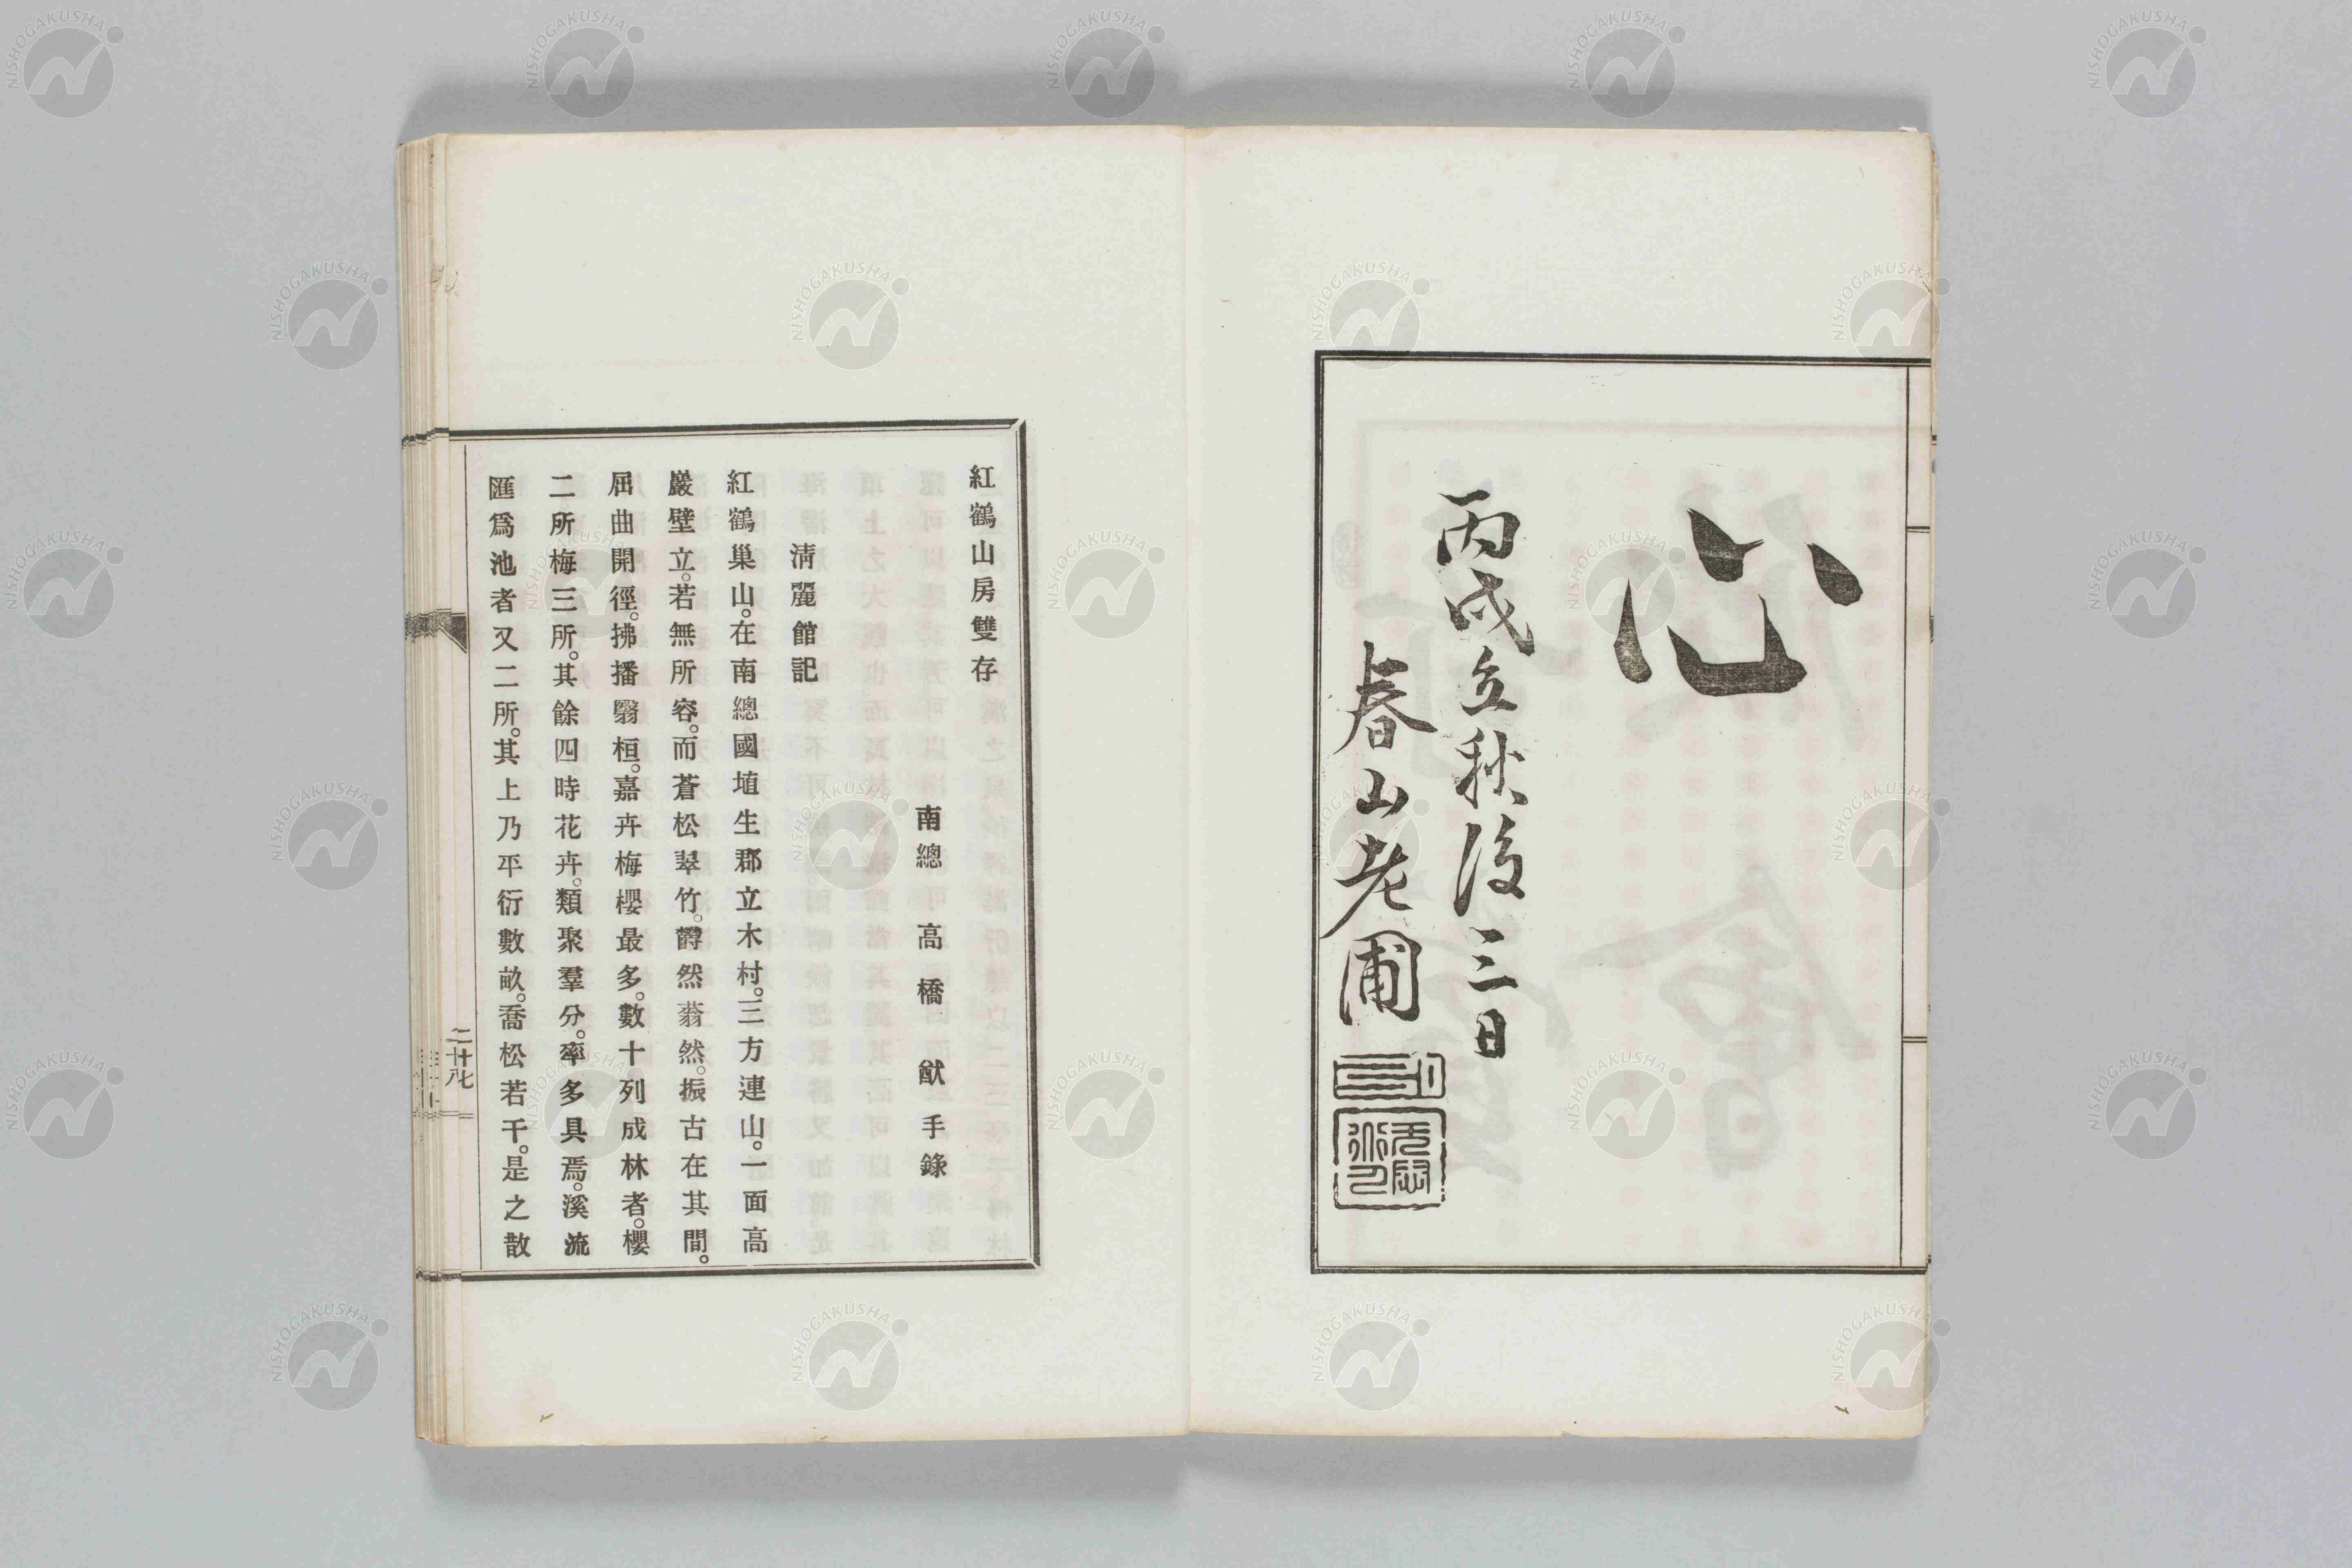 心
丙戌立秋後三日
春山老圃
紅鶴山房雙存
南總 高橋 猷手錄
清麗館記
紅鶴巢山。在南總國埴生郡立木村。三方連山。一面高
巖壁立。若無所容。而蒼松翠竹。欝然蓊然。振古在其間。
屈曲開徑。拂播翳桓。嘉卉梅櫻最多。數十列成林者。櫻
二所梅三所。其餘四時花卉。類聚羣分。率多具焉。溪流
匯爲池者又二所。其上乃平衍數畝。喬松若干。是之散
二十七
NISHOGAKUSHA